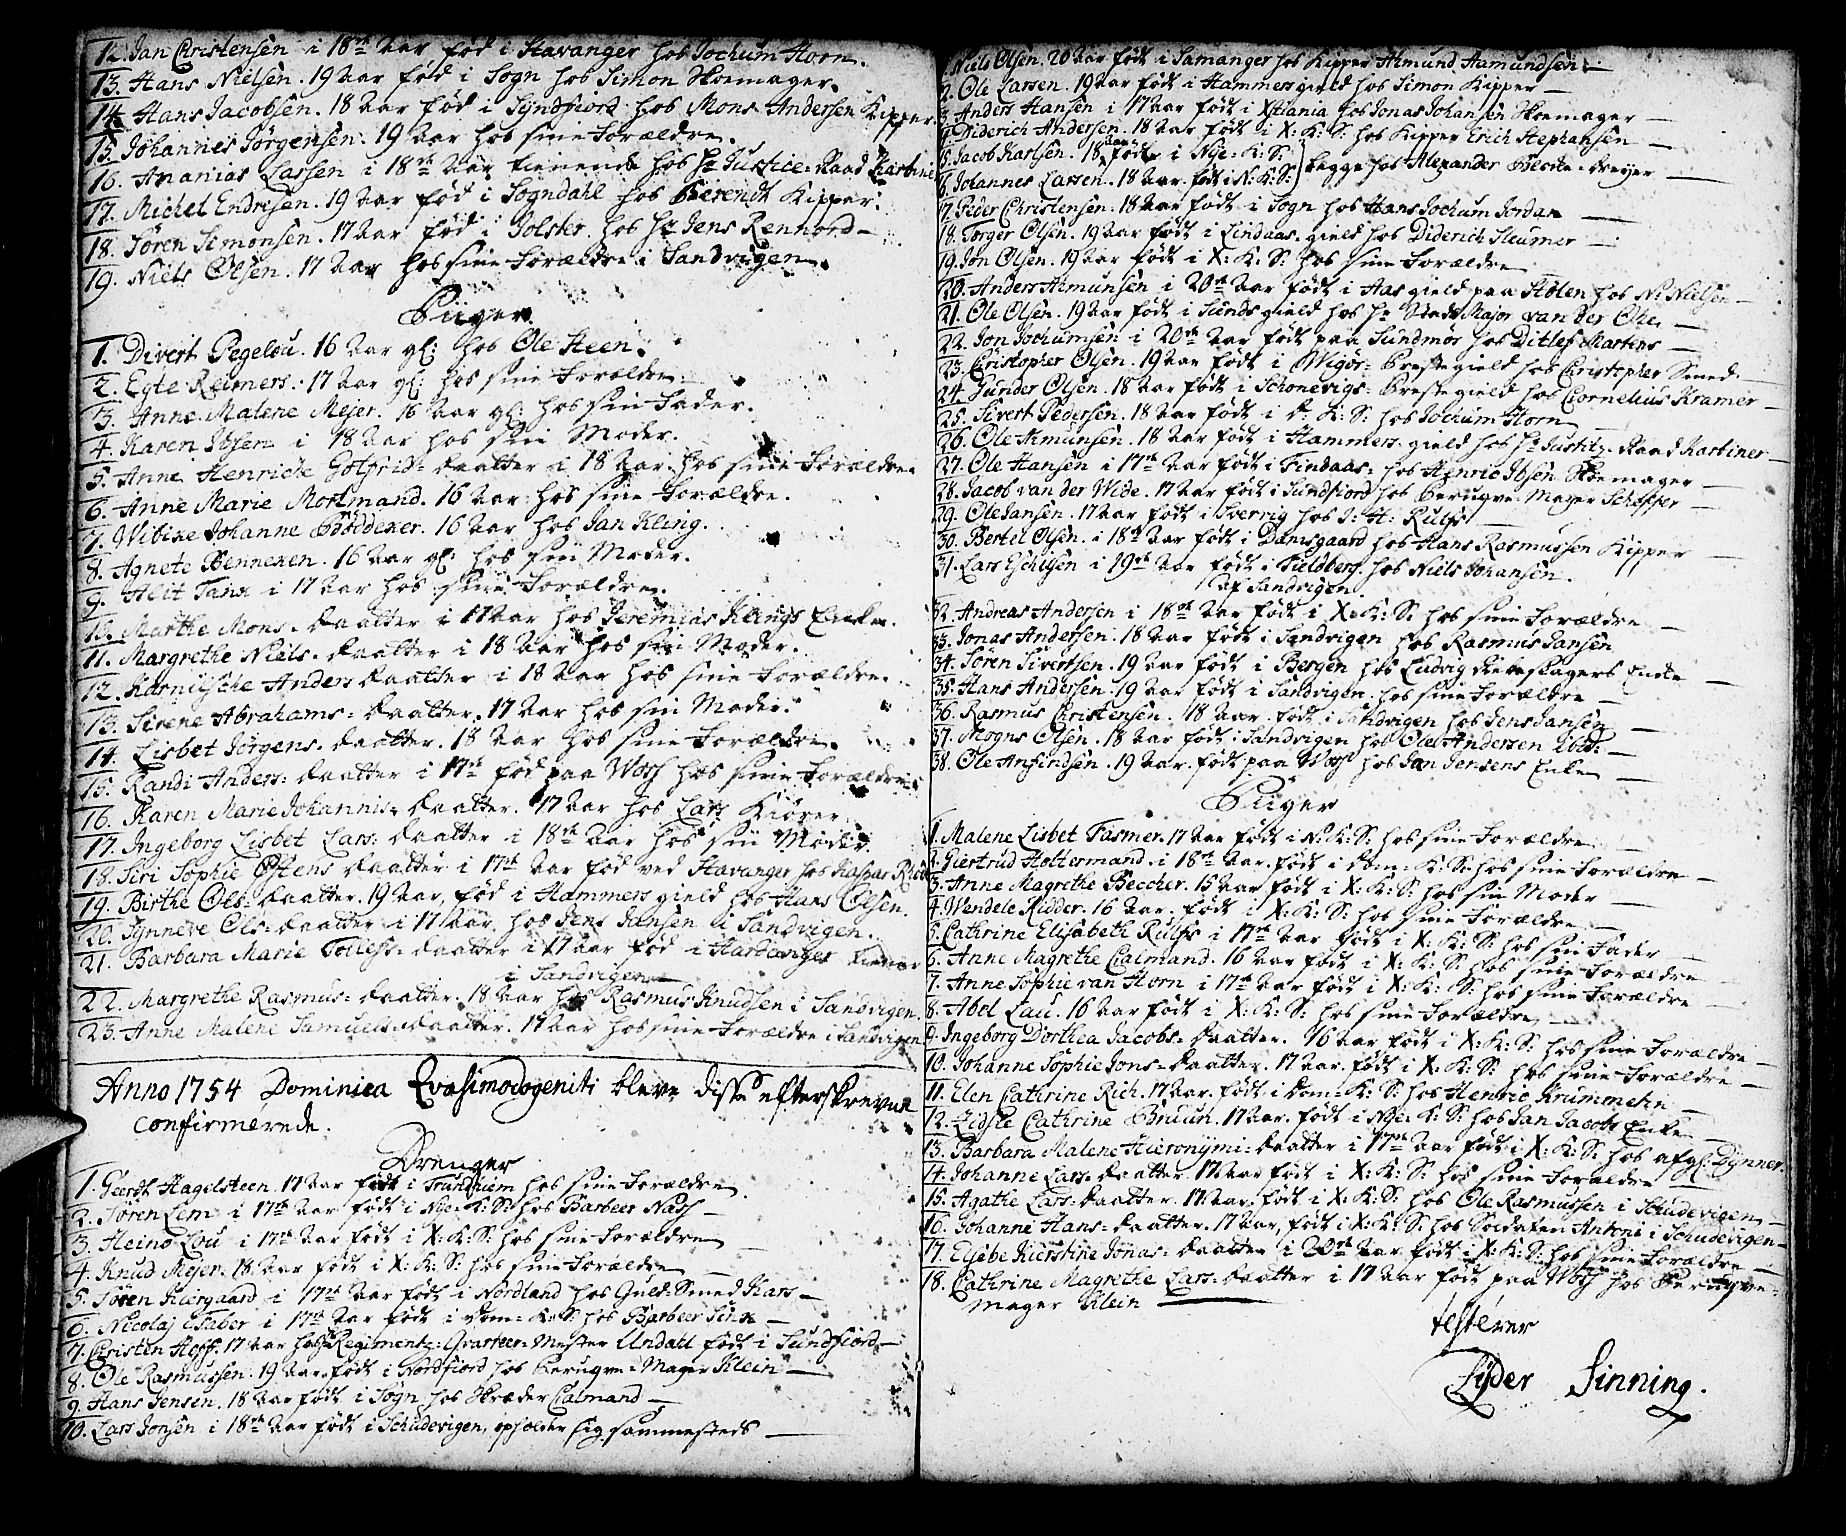 12. Jan Christensen i 18de Aar fød i Stavanger hos Jochum Horn.
13. Hans Nielsen. 19 Aar fød i Sogn hos Simon Skoemager.
14. Hans Jacobsen. 18 Aar fød i Syndfiord hos Mons Andersen Kipper.
15. Johannes Jørgensen. 19 Aar hos sine Forældre.
16. Ananias Lassen i 18de Aar tienende hos Hr Justice-Raad
17. Michel Endresen. 19 Aar fød i Sogndahl hos Berendt Kipper.
18. Søren Simonsen. 17 Aar fød i Jolster hos Hr Jens Rennord
19. Niels Olsen. 17 Aar hos sine Forældre i Sandvigen.
Piiger
1. Divert Pegelou. 16 Aar gl: hos Ole Steen.
2. Egte Reimers. 17 Aar gl: hos sine Forældre.
3. Anne Malene Mejer. 16 Aar gl: hos sin Fader.
4. Karen Ibsen i 18 Aar hos sin Moder.
5. Anne Henriche Gotfrids-Daatter i 18 Aar hos sine Forældre.
6. Anne Marie Mortmand. 16 Aar hos sine Forældre.
7. Wibike Johanne Bøddeker. 16 Aar hos Jan Kling.
8. Agnete Benneken. 16 Aar gl: hos sin Moder.
9. Alit Tank i 17 Aar hos sine Forældre.
10. Marthe Mons-Daatter i 17 Aar hos Jeremias Klings Enke.
11. Margrethe Niels-Daatter i 18 Aar hos sin Moder.
12. Karniische Anders Daatter i 18 Aar hos sine Forældre.
13. Sirene Abrahams-Daatter. 17 Aar hos sin Moder.
14. Lisbet Jørgens-Daatter. 18 Aar hos sine Forældre.
15. Randi Anders-Daatter i 17de fød paa Woss hos sine Forældre
16. Karen Marie Johannis-Daatter. 17 Aar hos Lars Kiører
17. Ingeborg Lisbet Lars-Daatter i 18de Aar hos sin Moder.
18. Siri Sophie Ostens Daatter i 17de Aar fød ved Stavanger hos Kaspar
19. Birthe Ols-Daatter. 19 Aar, fød i Hammers gield hos Hans Olsen.
20. Synneve Ols-Daatter i 17 Aar hos Jens Jansen i Sandvigen.
21. Barbara Marie Tollefs-Daatter i 17 Aar fød i Hardanger tiener
i Sandvigen
22. Margrethe Rasmus-Daatter. 18 Aar hos Rasmus Knudsen i Sandvigen.
23. Anne Malene Samuels-Daatter. 17 Aar hos sine Forældre i Sandvigen
Anno 1754 Dominica Qvasimodogeniti bleve disse efterskrevne
confirmerede.
Drenger
1. Geerdt Hagelsteen. 17 Aar født i Trundhiem hos sine Forældre
2. Søren Lem i 17de Aar født i Nye-K:S: hos Barbeer Nass
3. Heino Lou i 17de Aar født i X:K:S: hos sine Forældre
4. Knud Mejer. 18 Aar født i X:K:S: hos sine Forældre
5. Søren Kiergaard i 17de Aar født i Nordland hos Guld-Smed Hans
6. Nicolaj Taber i 17de Aar født i Dom-K:S: hos Barbeer Finx
7. Christen Hoff. 17 Aar hos Regiments-Qvarteer-Mester Undall født i Sundfiord
8. Ole Rasmussen. 19 Aar født i Nordfiord hos Perugve-Mager Klein
9. Hans Jensen. 18 Aar født i Sogn hos Skræder Calmand
10. Lars Jonsen i 18de Aar født i Schudevigen, opholder sig sammesteds
1. Niels Olsen. 20 Aar født i Samanger hos Kipper Amund Aamundsen
2. Ole Larsen. 19 Aar født i Hammers gield hos Simon Kipper
3. Anders Hansen i 17 Aar født i Xstiania hos Jonas Johansen Skoemager
4. Diderich Andersen. 18 Aar født i X:K:S: hos Kipper Erich Stephansen
5. Jacob Karlsen. 18 Aar født i Nye-K:S:
6. Johannes Larsen. 18 Aar født i N:K:S: begge hos Alexander Dreyer
17. Peder Christensen. 18 Aar født i Sogn hos Hans Jochum Jordan
18. Torger Olsen. 19 Aar født i Lindaas gield hos Diderich Sleumer
19. Jon Olsen. 19 Aar født i X:K:S: hos sine Forældre
20. Anders Amunsen i 20de Aar født i Aas gield paa Stølen hos N: Nielsen
21. Ole Olsen. 19 Aar født i Sunds gield hos Hr Stads Major van der Ohe.
22. Jon Jochumsen i 20de Aar født paa Sundmør hos Ditlef Martens
23. Christopher Olsen. 19 Aar født i Wigør-Prestegield hos Christopher Smed
24. Gunder Olsen. 18 Aar født i Schonevigs-Prestegield hos Cornelius Kramer
25. Sivert Pedersen. 18 Aar født i D:K:S: hos Jochum Horn
26. Ole Amunsen. 18 Aar født i Hammers gield hos Hr Justitz-Raad Kartiner
27. Ole Hansen i 17de Aar født i Findaas hos Henric Ibsen Skoemager
28. Jacob van der Wide. 17 Aar født i Sundfiord hos Perugve-Mager Scheffer
29. Ole Jansen. 17 Aar født i Sverrig hos J: H: Rulfs
30. Bertel Olsen. i 18de Aar født i Damsgaard hos Hans Rasmussen Kipper
31. Lars Eschilsen i 19de Aar født i Field-berg. hos Niels Johansen.
af Sandvigen
32. Andreas Andersen i 18de Aar født i X:K:S: hos sine Forældre
33. Jonas Andersen. 18 Aar født i Sandvigen hos Rasmus Jansen
34. Søren Sivertsen. 19 Aar født i Bergen hos Ludvig Enke
35. Hans Andersen. 19 Aar født i Sandvigen, hos sine Forældre
36. Rasmus Christensen. 18 Aar født i Sandvigen hos Jens Jansen
37. Mogns Olsen. 18 Aar født i Sandvigen hos Ole Andersen ibid:
38. Ole Anfindsen. 19 Aar. født paa Woss hos Jan Jensens Enke
Piiger
1. Malene Lisbet Fasmer. 17 Aar født i N:K:S: hos sine Forældre
2. Giertrud Holtermand i 18de Aar født i Dom-K:S: hos sine Forældre
3. Anne Magrethe Beccher. 15 Aar født i X:K:S: hos sin Moder
4. Wendele Ridder. 16 Aar født i X:K:S: hos sine Forældre
5. Cathrine Elisabeth Rulfs i 17de Aar født i X:K:S: hos sin Fader
6. Anne Magrethe Calmand. 16 Aar født i X:K:S: hos sine Forældre
7. Anne Sophie van Horn i 17de Aar født i X:K:S: hos sine Forældre
8. Abel Lau. 16 Aar født i X:K:S: hos sine Forældre
9. Ingeborg Dorthea Jacobs-Daatter. 16 Aar født i X:K:S: hos sine Forældre
10. Johanne Sophie Jons-Daatter. 17 Aar. født i X:K:S: hos sine Forældre
11. Elen Cathrine Rich. 17 Aar. født i Dom-K:S: hos Henric Krummehn
12. Zidsle Cathrine Bruun. 17 Aar. født i Nye-K:S: hos Jan Jacobs Enke
13. Barbara Malene Hieronymi-Daatter i 17de Aar født i X:K:S: hos Dynner.
14. Johanne Lars-Daatter. 17 Aar født i X:K:S: hos sine Forældre
15. Agathe Lars-Daatter. 17 Aar, født i X:K:S: hos Ole Rasmussen i Schudevigen
16. Johanne Hans-Daatter. 17 Aar, født i X:K:S: hos Soldaten Antoni i Schudevigen
17. Elsebe Kierstine Jonas-Daatter i 20de Aar født i X:K:S: hos sine Forældre
18. Cathrine Magrethe Lars-Daatter i 17 Aar født paa Woss hos Perugve-
Mager Klein
testerer
Lyder Sinning.